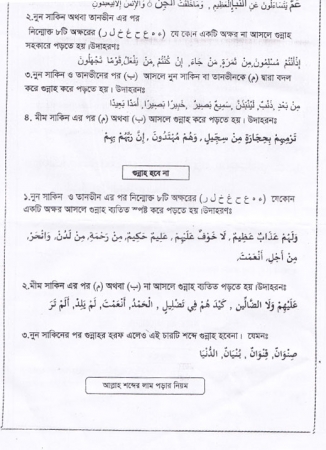 عَمَّ يَتَسَاءَلُونَ عَنِ النَّبَإِ الْعَظِيمِ , وَمَا خَلَقْتُ الْجِنَّ ○ وَالْإِنْسَ إِلَّا لِيَعْبُدُونِ
২.নুন সাকিন অথবা তানভীন এর পর
নিম্নোক্ত ৮টি অক্ষরের (ه ء ع ح غ خ ل ر) যে কোন একটি অক্ষর না আসলে গুন্নাহ
সহকারে পড়তে হয় ।উদাহরণঃ
৩.নুন সাকিন ও তানভীনের পর (ب) আসলে নুন সাকিন বা তানভীনকে (م) দ্বারা বদল
করে গুন্নাহ করে পড়তে হয়। উদাহরনঃ
مِنْ بَعْدِ ,ذَنْبٌ, لَيُنْبَذَنَّ, سَمِيعٌ بَصِيرٌ , خَبِيرًا بَصِيرًا, أَمَدًا بَعِيدًا
৪. মীম সাকিন এর পর (م) অথবা (ب) আসলে গুন্নাহ করে পড়তে হয়। উদাহরনঃ
تَرْمِيهِمْ بِحِجَارَةٍ مِنْ سِجِّيلٍ , وَهُمْ مُهْتَدُونَ , إِنَّ رَبَّهُمْ بِهِمْ
গুন্নাহ হবে না
১.নুন সাকিন ও তানভীন এর পর নিম্নোক্ত ৮টি অক্ষরের (ه ء ع ح غ خ ل ر) যেকোন
একটি অক্ষর আসলে গুন্নাহ ব্যতিত স্পষ্ট করে পড়তে হয় ।উদাহরণঃ
وَلَهُمْ عَذَابٌ عَظِيمٌ, لَا خَوْفٌ عَلَيْهِمْ , عَلِيمٌ حَكِيمٌ, مِنْ رَحْمَةِ, مِنْ لَدُنْ, وَانْحَرْ,
مِنْ أَجْلِ, أَنْعَمْتَ,
২.মীম সাকিন এর পর (م) অথবা (ب) না আসলে গুন্নাহ ব্যতিত পড়তে হয় ।উদাহরনঃ
عَلَيْهِمْ وَلَا الضَّالِّين , كَيْدَهُمْ فِي تَضْلِيلٍ , الْحَمْدُ, أَنْعَمْتَ, لَمْ يَلِدْ, أَلَمْ تَرَ
৩.নুন সাকিনের পর গুন্নাহর হরফ এলেও এই চারটি শব্দে গুন্নাহ হবেনা । যেমনঃ
صِنْوَانٌ, قِنْوَانٌ , بُنْيَانٌ, الدُّنْيَا
আল্লাহ শব্দের লাম পড়ার নিয়ম